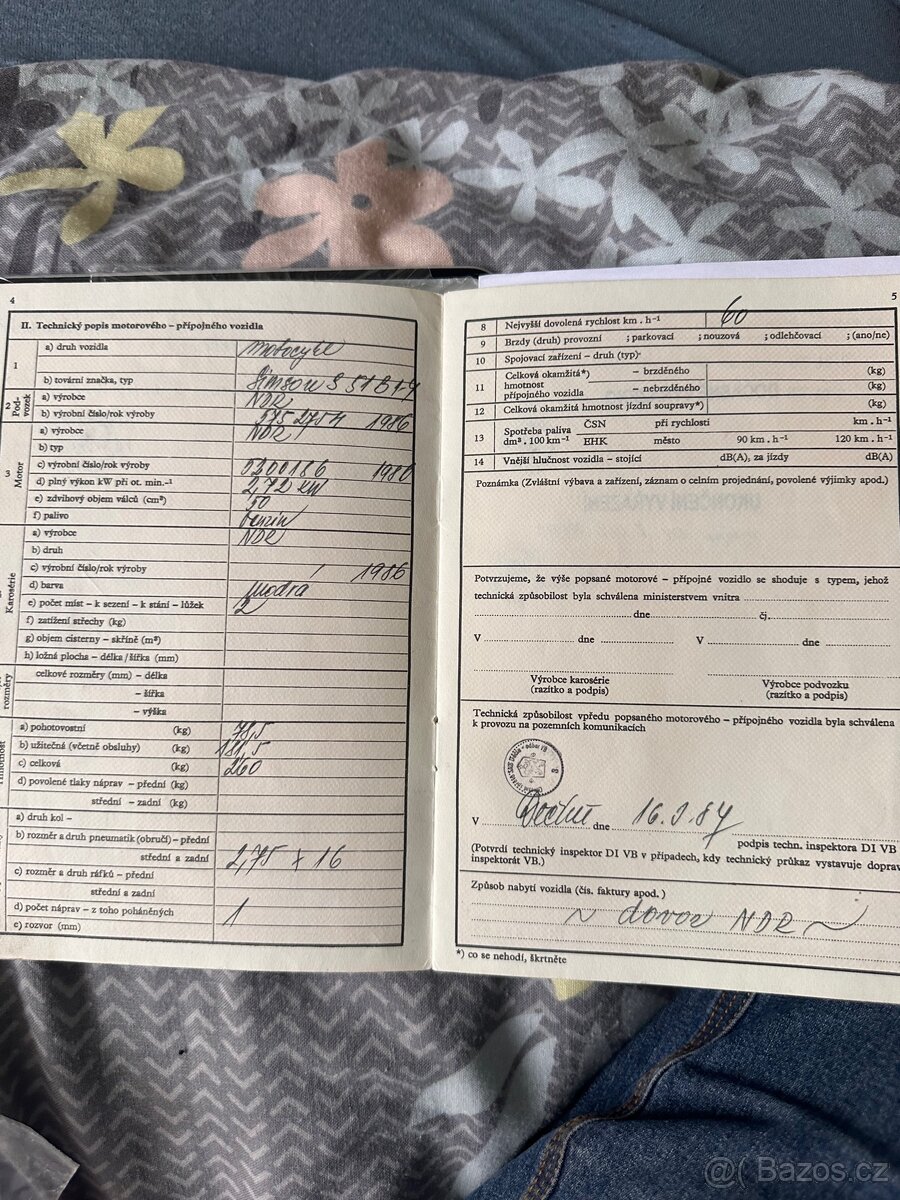 4
II. Technický popis motorového – přípojného vozidla
1
a) druh vozidla motocykl
b) tovární značka, typ Simson S 51 B1-4
2
Podvozek
a) výrobce NDR
b) výrobní číslo/rok výroby 1986
3
Motor
a) výrobce NDR
b) typ
c) výrobní číslo/rok výroby 1986
d) plný výkon kW při ot. min.⁻¹ 2,72 kW
e) zdvihový objem válců (cm³) 50
f) palivo benzin
Karosérie
a) výrobce NDR
b) druh
c) výrobní číslo/rok výroby / 1986
d) barva modrá
e) počet míst – k sezení – k stání – lůžek 2
f) zatížení střechy (kg)
g) objem cisterny – skříně (m³)
h) ložná plocha – délka/šířka (mm)
rozměry
celkové rozměry (mm) – délka
– šířka
– výška
a) pohotovostní (kg) 78,5
b) užitečná (včetně obsluhy) (kg) 181,5
c) celková (kg) 260
d) povolené tlaky náprav – přední (kg)
střední – zadní (kg)
a) druh kol –
b) rozměr a druh pneumatik (obručí) – přední
střední a zadní 2,75 x 16
c) rozměr a druh ráfků – přední
střední a zadní
d) počet náprav – z toho poháněných 1
e) rozvor (mm)
5
8 Nejvyšší dovolená rychlost km . h⁻¹ 60
9 Brzdy (druh) provozní ; parkovací ; nouzová ; odlehčovací ; (ano/ne)
10 Spojovací zařízení – druh (typ)
11 Celková okamžitá*) – brzděného (kg)
hmotnost
přípojného vozidla – nebrzděného (kg)
12 Celková okamžitá hmotnost jízdní soupravy*) (kg)
13 Spotřeba paliva ČSN při rychlosti km . h⁻¹
dm³ . 100 km⁻¹ EHK město 90 km . h⁻¹ 120 km . h⁻¹
14 Vnější hlučnost vozidla – stojící dB(A), za jízdy dB(A)
Poznámka (Zvláštní výbava a zařízení, záznam o celním projednání, povolené výjimky apod.)
Potvrzujeme, že výše popsané motorové – přípojné vozidlo se shoduje s typem, jehož
technická způsobilost byla schválena ministerstvem vnitra
dne čj.
V dne V dne
Výrobce karosérie Výrobce podvozku
(razítko a podpis) (razítko a podpis)
Technická způsobilost vpředu popsaného motorového – přípojného vozidla byla schválena
k provozu na pozemních komunikacích
V dne
podpis techn. inspektora DI VB
(Potvrdí technický inspektor DI VB v případech, kdy technický průkaz vystavuje doprav
inspektorát VB.)
Způsob nabytí vozidla (čís. faktury apod.)
~ dovoz NDR ~
*) co se nehodí, škrtněte
@( Bazos.cz